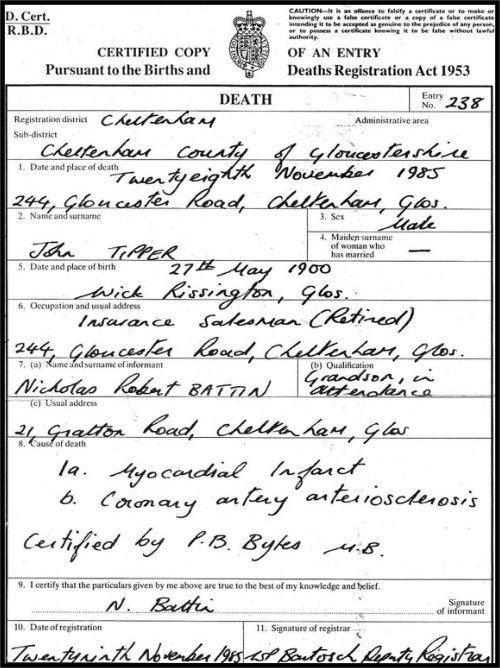 D. Cert.
R.B.D.
CAUTION—It is an offence to falsify a certificate or to make or
knowingly use a false certificate or a copy of a false certificate
intending it to be accepted as genuine to the prejudice of any person,
or to possess a certificate knowing it to be false without lawful
authority.
CERTIFIED COPY OF AN ENTRY
Pursuant to the Births and Deaths Registration Act 1953
DEATH
Entry No. 238
Registration district Cheltenham Administrative area
Sub-district
Cheltenham County of Gloucestershire
1. Date and place of death
Twentyeighth November 1985
244, Gloucester Road, Cheltenham, Glos.
2. Name and surname
John TIPPER
3. Sex
Male
4. Maiden surname
of woman who
has married —
5. Date and place of birth 27th May 1900
Wick Rissington, Glos.
6. Occupation and usual address
Insurance Salesman (Retired)
244, Gloucester Road, Cheltenham, Glos.
7. (a) Name and surname of informant
Nicholas Robert BATTIN
(b) Qualification
Grandson, in
attendance
(c) Usual address
21, Gratton Road, Cheltenham, Glos
8. Cause of death
1a. Myocardial Infarct
b. Coronary artery arteriosclerosis
Certified by P.B. Bytes M.B.
9. I certify that the particulars given by me above are true to the best of my knowledge and belief.
N. Battin
Signature
of informant
10. Date of registration
Twentyninth November 1985
11. Signature of registrar
Bartosch Deputy Registrar